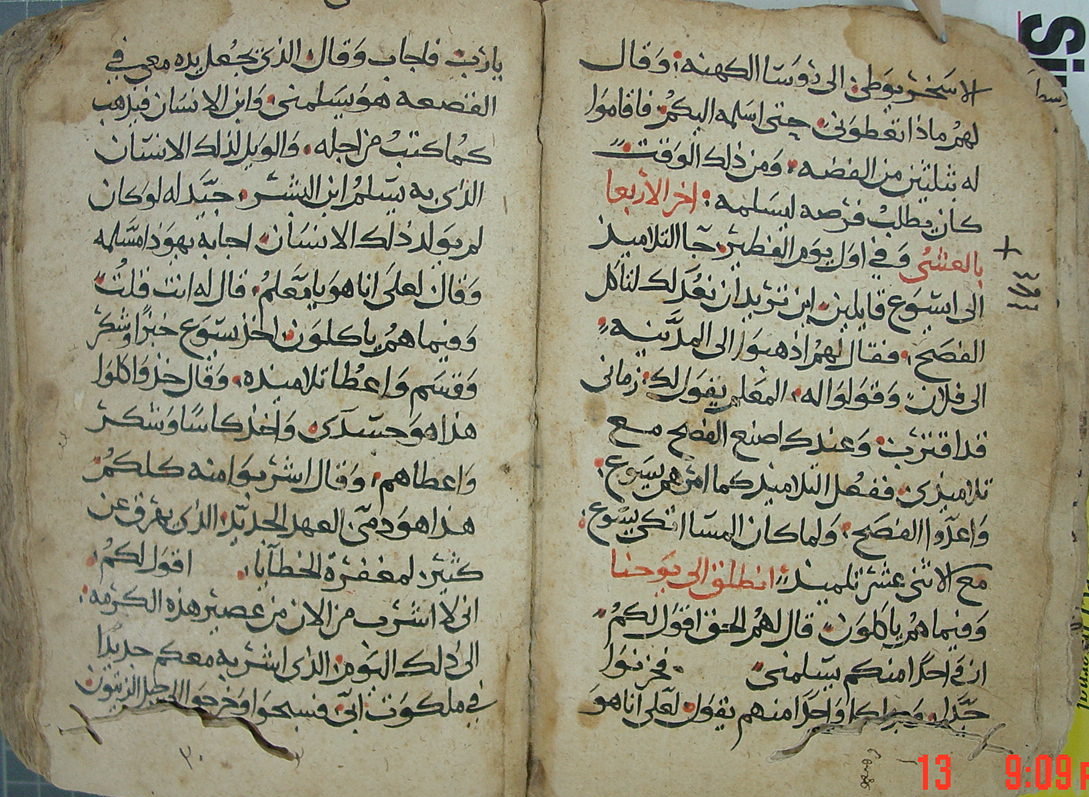 الاسخريوطي الى روسا الكهنه، وقال
لهم ماذا تعطوني حتى اسلمه اليكم فاقاموا
له بثلثين من الفضه، ومن ذلك الوقت
كان يطلب فرصه ليسلمه: اخر الاربعا
بالعشي وفي اول يوم الفطير جا التلاميذ
الى ايسوع قايلين اين تريد ان نعد لك لتاكل
الفصح، فقال لهم اذهبوا الى المدينه
الى فلان وقولوا له، المعلم يقول لك زماني
قد اقترب وعندك اصنع الفصح مع
تلاميذي، ففعل التلاميذ كما امرهم يسوع
واعدوا الفصح، ولما كان المسا اتكى يسوع
مع الاثنى عشر تلميذ انطلق الى يوحنا
وفيما هم ياكلون قال لهم الحق اقول لكم
ان واحدا منكم يسلمني فحزنوا
جدا واحدا منهم يقول لعلي انا هو
يارب فاجاب وقال الذي يجعل يده معي في
القصعه هو يسلمني وابن الانسان فيذهب
كما كتب من اجله، والويل لذلك الانسان
الذي به يسلم ابن البشر، جيد له لو كان
لم يولد ذلك الانسان اجابه يهوذا مسلمه
وقال لعلي انا هو يا معلم، قال له انت قلت
وفيما هم ياكلون اخذ يسوع خبزا وشكر
وقسم واعطا تلاميذه، وقال خذوا كلوا
هذا هو جسدي واخذ كاسا وشكر
واعطاهم، وقال اشربوا منه كلكم
هذا هو دمي العهد الجديد، الذي يهرق عن
كثير، لمغفرة الخطايا، اقول لكم،
اني لا اشرب من الان من عصير هذه الكرمه،
الى ذلك اليوم الذي اشربه معكم جديدا
في ملكوت ابي فسبحوا وخرجوا الى جبل الزيتون
٣٠
13 9:09